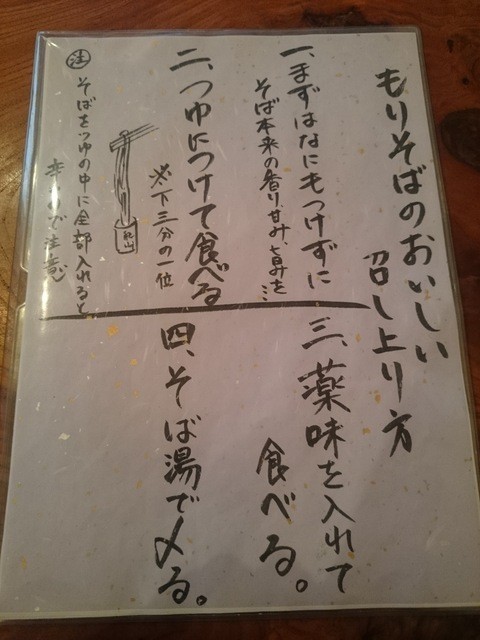 もりそばのおいしい
召し上り方
一、まずはなにもつけずに
そば本来の香り、甘み、旨みを…
二、つゆにつけて食べる
※下三分の一位
㊟そばをつゆの中に全部入れると
辛いので注意
三、薬味を入れて
食べる。
四、そば湯で〆る。